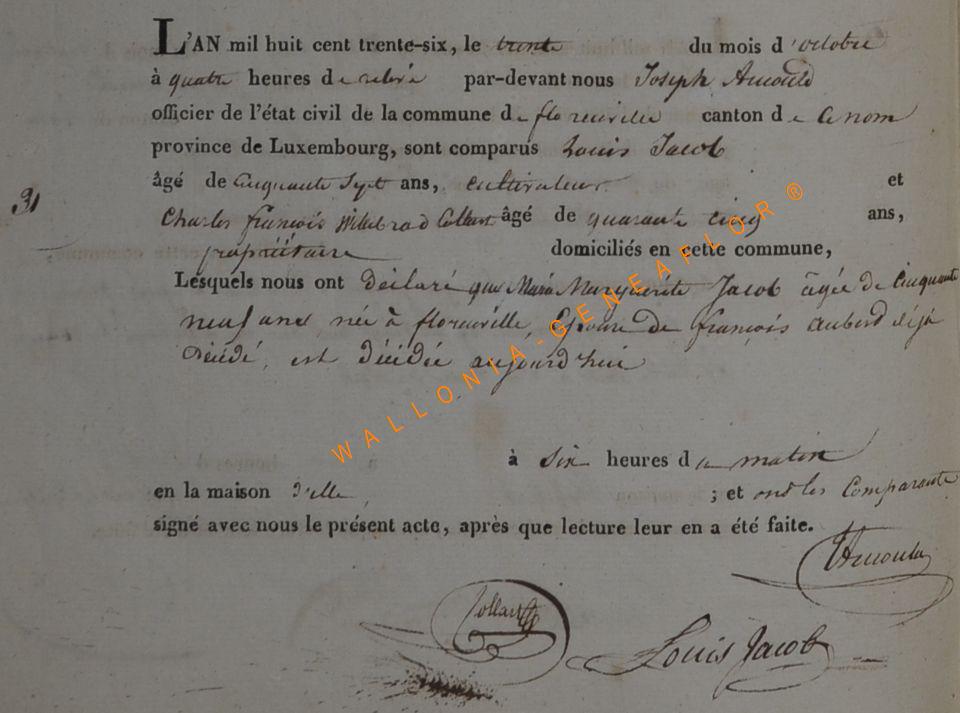 L'AN mil huit cent trente-six, le trente du mois d'octobre
à quatre heures de relevé par-devant nous Joseph Arnould
officier de l'état civil de la commune de florenville canton de ce nom
province de Luxembourg, sont comparus Louis Jacob
âgé de Cinquante Sept ans, Cultivateur et
31
Charles françois Willebrod Collart âgé de quarante cinq ans,
propriétaire domiciliés en cette commune,
Lesquels nous ont déclaré que Marie Marguerite Jacob âgée de Cinquante
neuf ans née à florenville, Epouse de françois aubord déjà
Décédé, est décédée aujourd'hui
à Six heures du matin
en la maison d'elle ; et ont les Comparants
signé avec nous le présent acte, après que lecture leur en a été faite.
JArnould
Collart
Louis Jacob
WALLONIA-GENEAFLOR®